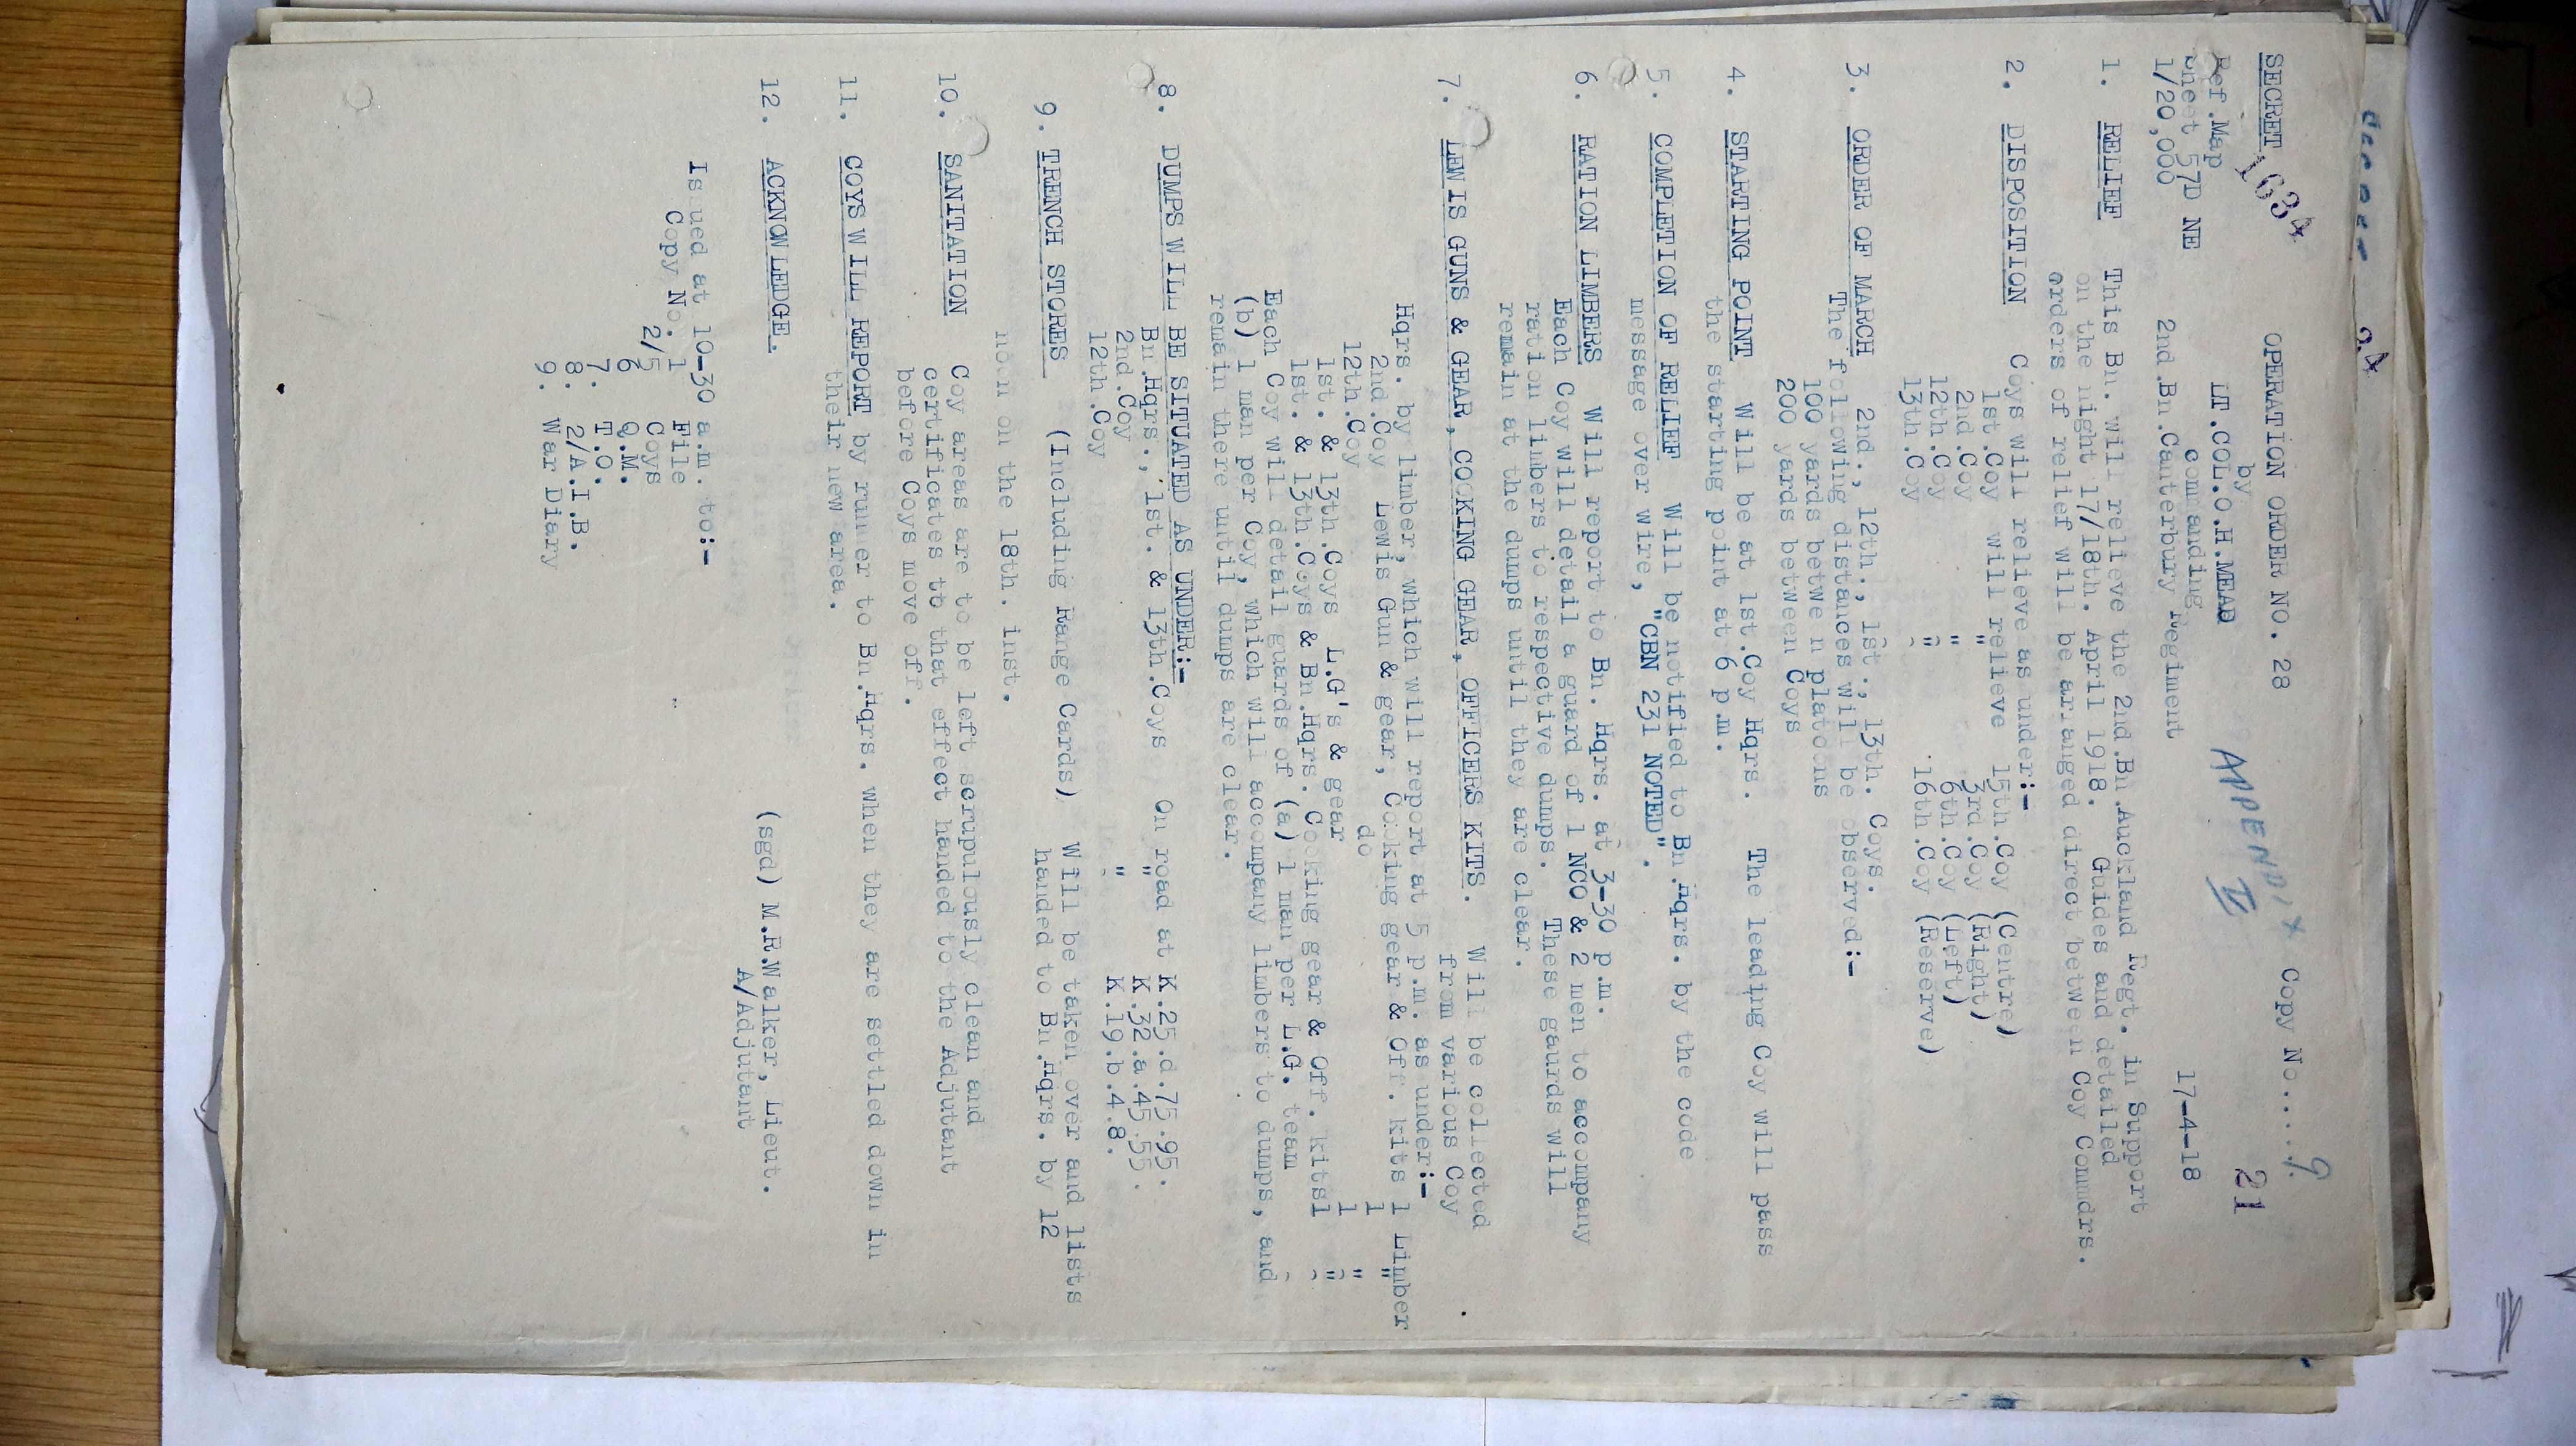 SECRET 1634 OPERATION ORDER NO. 28 Copy No..... 9.
by
Ref.Map LT.COL.O.H.MEAD APPENDIX II 21
Sheet 57D NE commanding
1/20,000 2nd.Bn.Canterbury Regiment 17-4-18
1. RELIEF This Bn. will relieve the 2nd.Bn.Auckland Regt. in Support
on the night 17/18th. April 1918. Guides and detailed
orders of relief will be arranged direct between Coy Commdrs.
2. DISPOSITION Coys will relieve as under:-
1st.Coy will relieve 15th.Coy (Centre)
2nd.Coy " 3rd.Coy (Right)
12th.Coy " 6th.Coy (Left)
13th.Coy " 16th.Coy (Reserve)
3. ORDER OF MARCH 2nd., 12th., 1st., 13th. Coys.
The following distances will be observed:-
100 yards betwe n platoons
200 yards between Coys
4. STARTING POINT Will be at 1st.Coy Hqrs. The leading Coy will pass
the starting point at 6 p.m.
5. COMPLETION OF RELIEF Will be notified to Bn.Hqrs. by the code
message over wire, "CBN 231 NOTED".
6. RATION LIMBERS Will report to Bn. Hqrs. at 3-30 p.m.
Each Coy will detail a guard of 1 NCO & 2 men to accompany
ration limbers to respective dumps. These gaurds will
remain at the dumps until they are clear.
7. LEWIS GUNS & GEAR, COOKING GEAR, OFFICERS KITS. Will be collected
from various Coy
Hqrs. by limber, which will report at 5 p.m. as under:-
2nd.Coy Lewis Gun & gear, Cooking gear & Off. kits 1 Limber
12th.Coy do 1 "
1st. & 13th.Coys L.G's & gear 1 "
1st. & 13th.Coys & Bn.Hqrs. Cooking gear & Off. kits1 "
Each Coy will detail guards of (a) 1 man per L.G. team
(b) 1 man per Coy, which will accompany limbers to dumps, and
remain there until dumps are clear.
8. DUMPS WILL BE SITUATED AS UNDER:-
Bn.Hqrs., 1st. & 13th.Coys On road at K.25.d.75.95.
2nd.Coy " K.32.a.45.55.
12th.Coy " K.19.b.4.8.
9. TRENCH STORES (Including Range Cards) Will be taken over and lists
handed to Bn.Hqrs. by 12
noon on the 18th. inst.
10. SANITATION Coy areas are to be left scrupulously clean and
certificates to that effect handed to the Adjutant
before Coys move off.
11. COYS WILL REPORT by runner to Bn.Hqrs. when they are settled down in
their new area.
12. ACKNOWLEDGE.
(sgd) M.R.Walker, Lieut.
A/Adjutant
Issued at 10-30 a.m. to:-
Copy No. 1 File
2/5 Coys
6 Q.M.
7. T.O.
8. 2/A.I.B.
9. War Diary